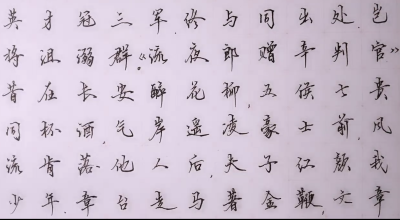 英才冠三军。终与同出处，岂
将沮溺群。《流夜郎赠辛判官》
昔在长安醉花柳，五侯七贵
同杯酒，气岸遥凌豪士前，风
流肯落他人后，夫子红颜我
少年，章台走马著金鞭，文章